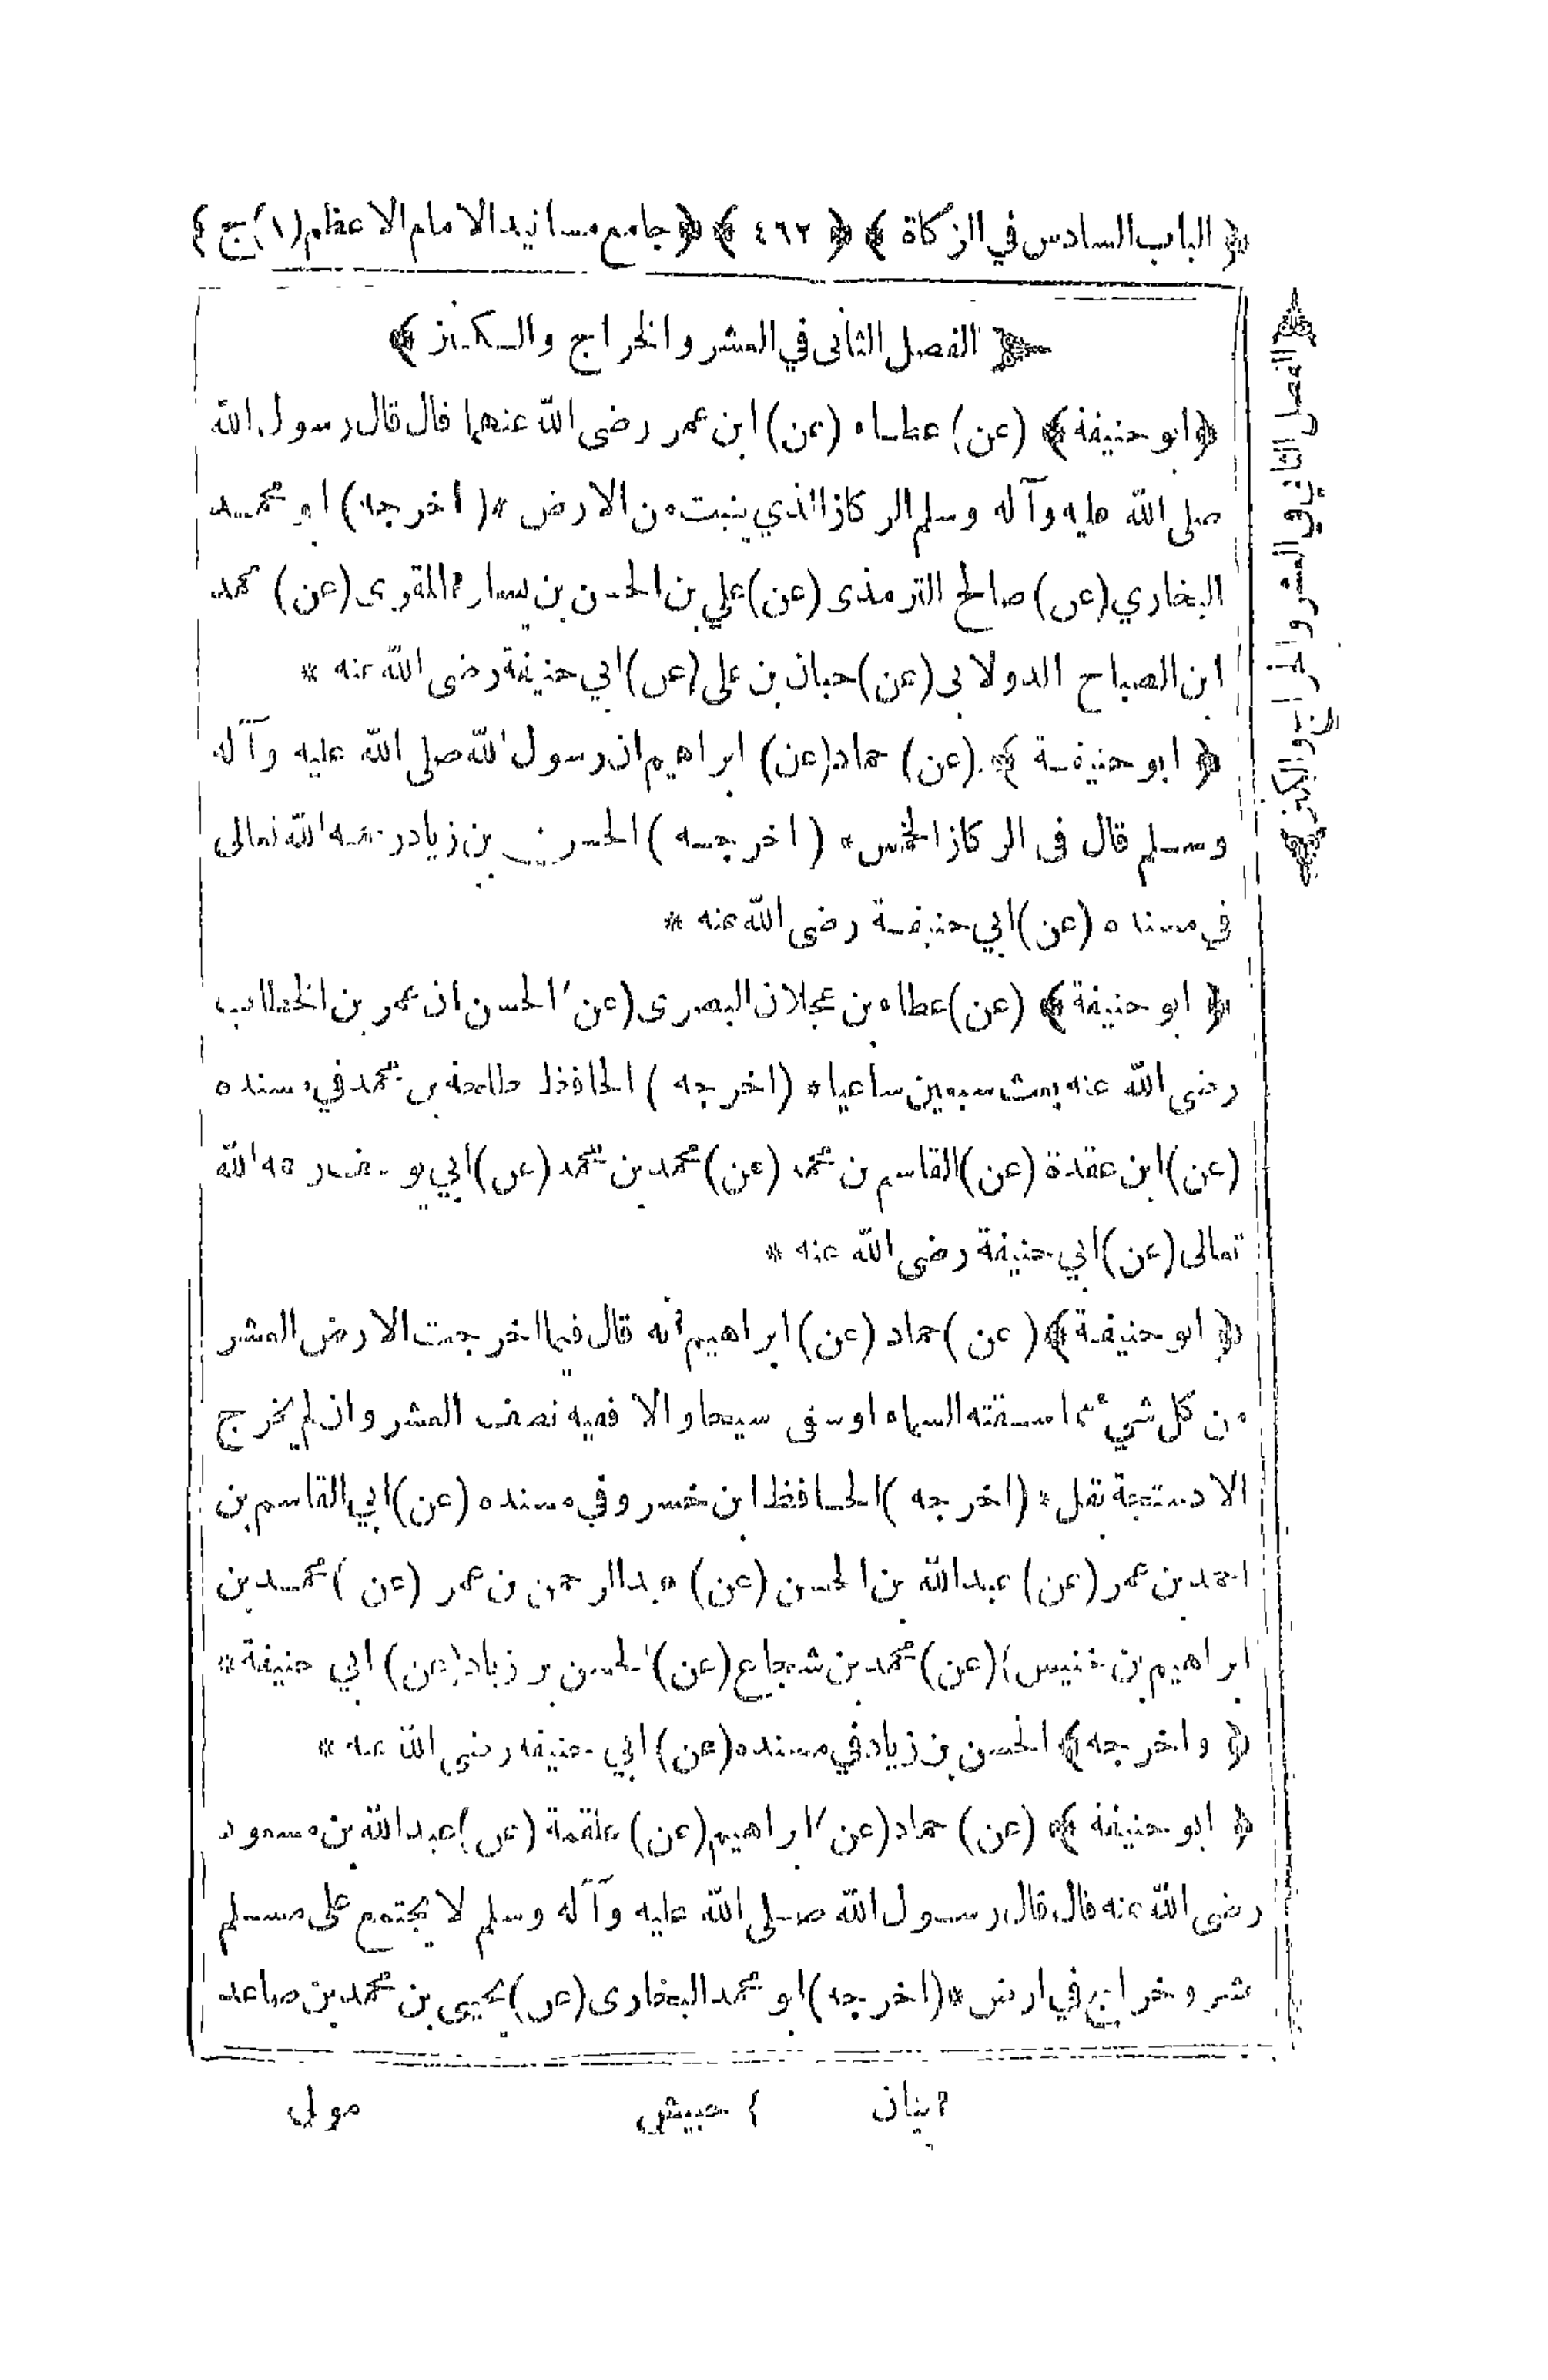 ﴿ الباب السادس في الزكاة ﴾ ﴿ ٤٦٢ ﴾ ﴿ جامع مسانيد الامام الاعظم (١) ج ﴾
﴿ الفصل الثانى في العشر والخراج والكنز ﴾
﴿ ابو حنيفة ﴾ (عن) عطاء (عن) ابن عمر رضى الله عنهما قال قال رسول الله
صلى الله عليه وآله وسلم الركاز الذي ينبت من الارض * (اخرجه) ابو محمد
البخاري (عن) صالح الترمذى (عن) علي بن الحسن بن يسار ٢ المقرى (عن) محمد
ابن الصباح الدولابى (عن) حبان بن على (عن) ابي حنيفة رضى الله عنه *
﴿ ابو حنيفة ﴾ (عن) حماد (عن) ابراهيم ان رسول الله صلى الله عليه وآله
وسلم قال فى الركاز الخمس * (اخرجه) الحسن بن زياد رحمه الله تعالى
في مسنده (عن) ابي حنيفة رضى الله عنه *
﴿ ابو حنيفة ﴾ (عن) عطاء بن عجلان البصرى (عن) الحسن ان عمر بن الخطاب
رضى الله عنه بعث سبعين ساعيا * (اخرجه) الحافظ طلحة بن محمد في مسنده
(عن) ابن عقدة (عن) القاسم بن محمد (عن) محمد بن محمد (عن) ابي يوسف رحمه الله
تعالى (عن) ابي حنيفة رضى الله عنه *
﴿ ابو حنيفة ﴾ (عن) حماد (عن) ابراهيم انه قال فيما اخرجت الارض العشر
من كل شيء مما سقته السماء او سقى سيحا والا ففيه نصف العشر وان لم يخرج
الا دستجة بقل * (اخرجه) الحافظ ابن خسرو في مسنده (عن) ابي القاسم بن
احمد بن عمر (عن) عبد الله بن الحسن (عن) عبد الرحمن بن عمر (عن) محمد بن
ابراهيم بن خنيس ٤ (عن) محمد بن شجاع (عن) الحسن بن زياد (عن) ابي حنيفة *
﴿ واخرجه ﴾ الحسن بن زياد في مسنده (عن) ابي حنيفه رضى الله عنه *
﴿ ابو حنيفة ﴾ (عن) حماد (عن) ابراهيم (عن) علقمة (عن) عبد الله بن مسعود
رضى الله عنه قال قال رسول الله صلى الله عليه وآله وسلم لا يجتمع على مسلم
عشر وخراج في ارض * (اخرجه) ابو محمد البخارى (عن) يحيى بن محمد بن صاعد
٢ بنان ٤ حبيش مولى
﴿ الفصل الثاني في العشر والخراج والكنز ﴾